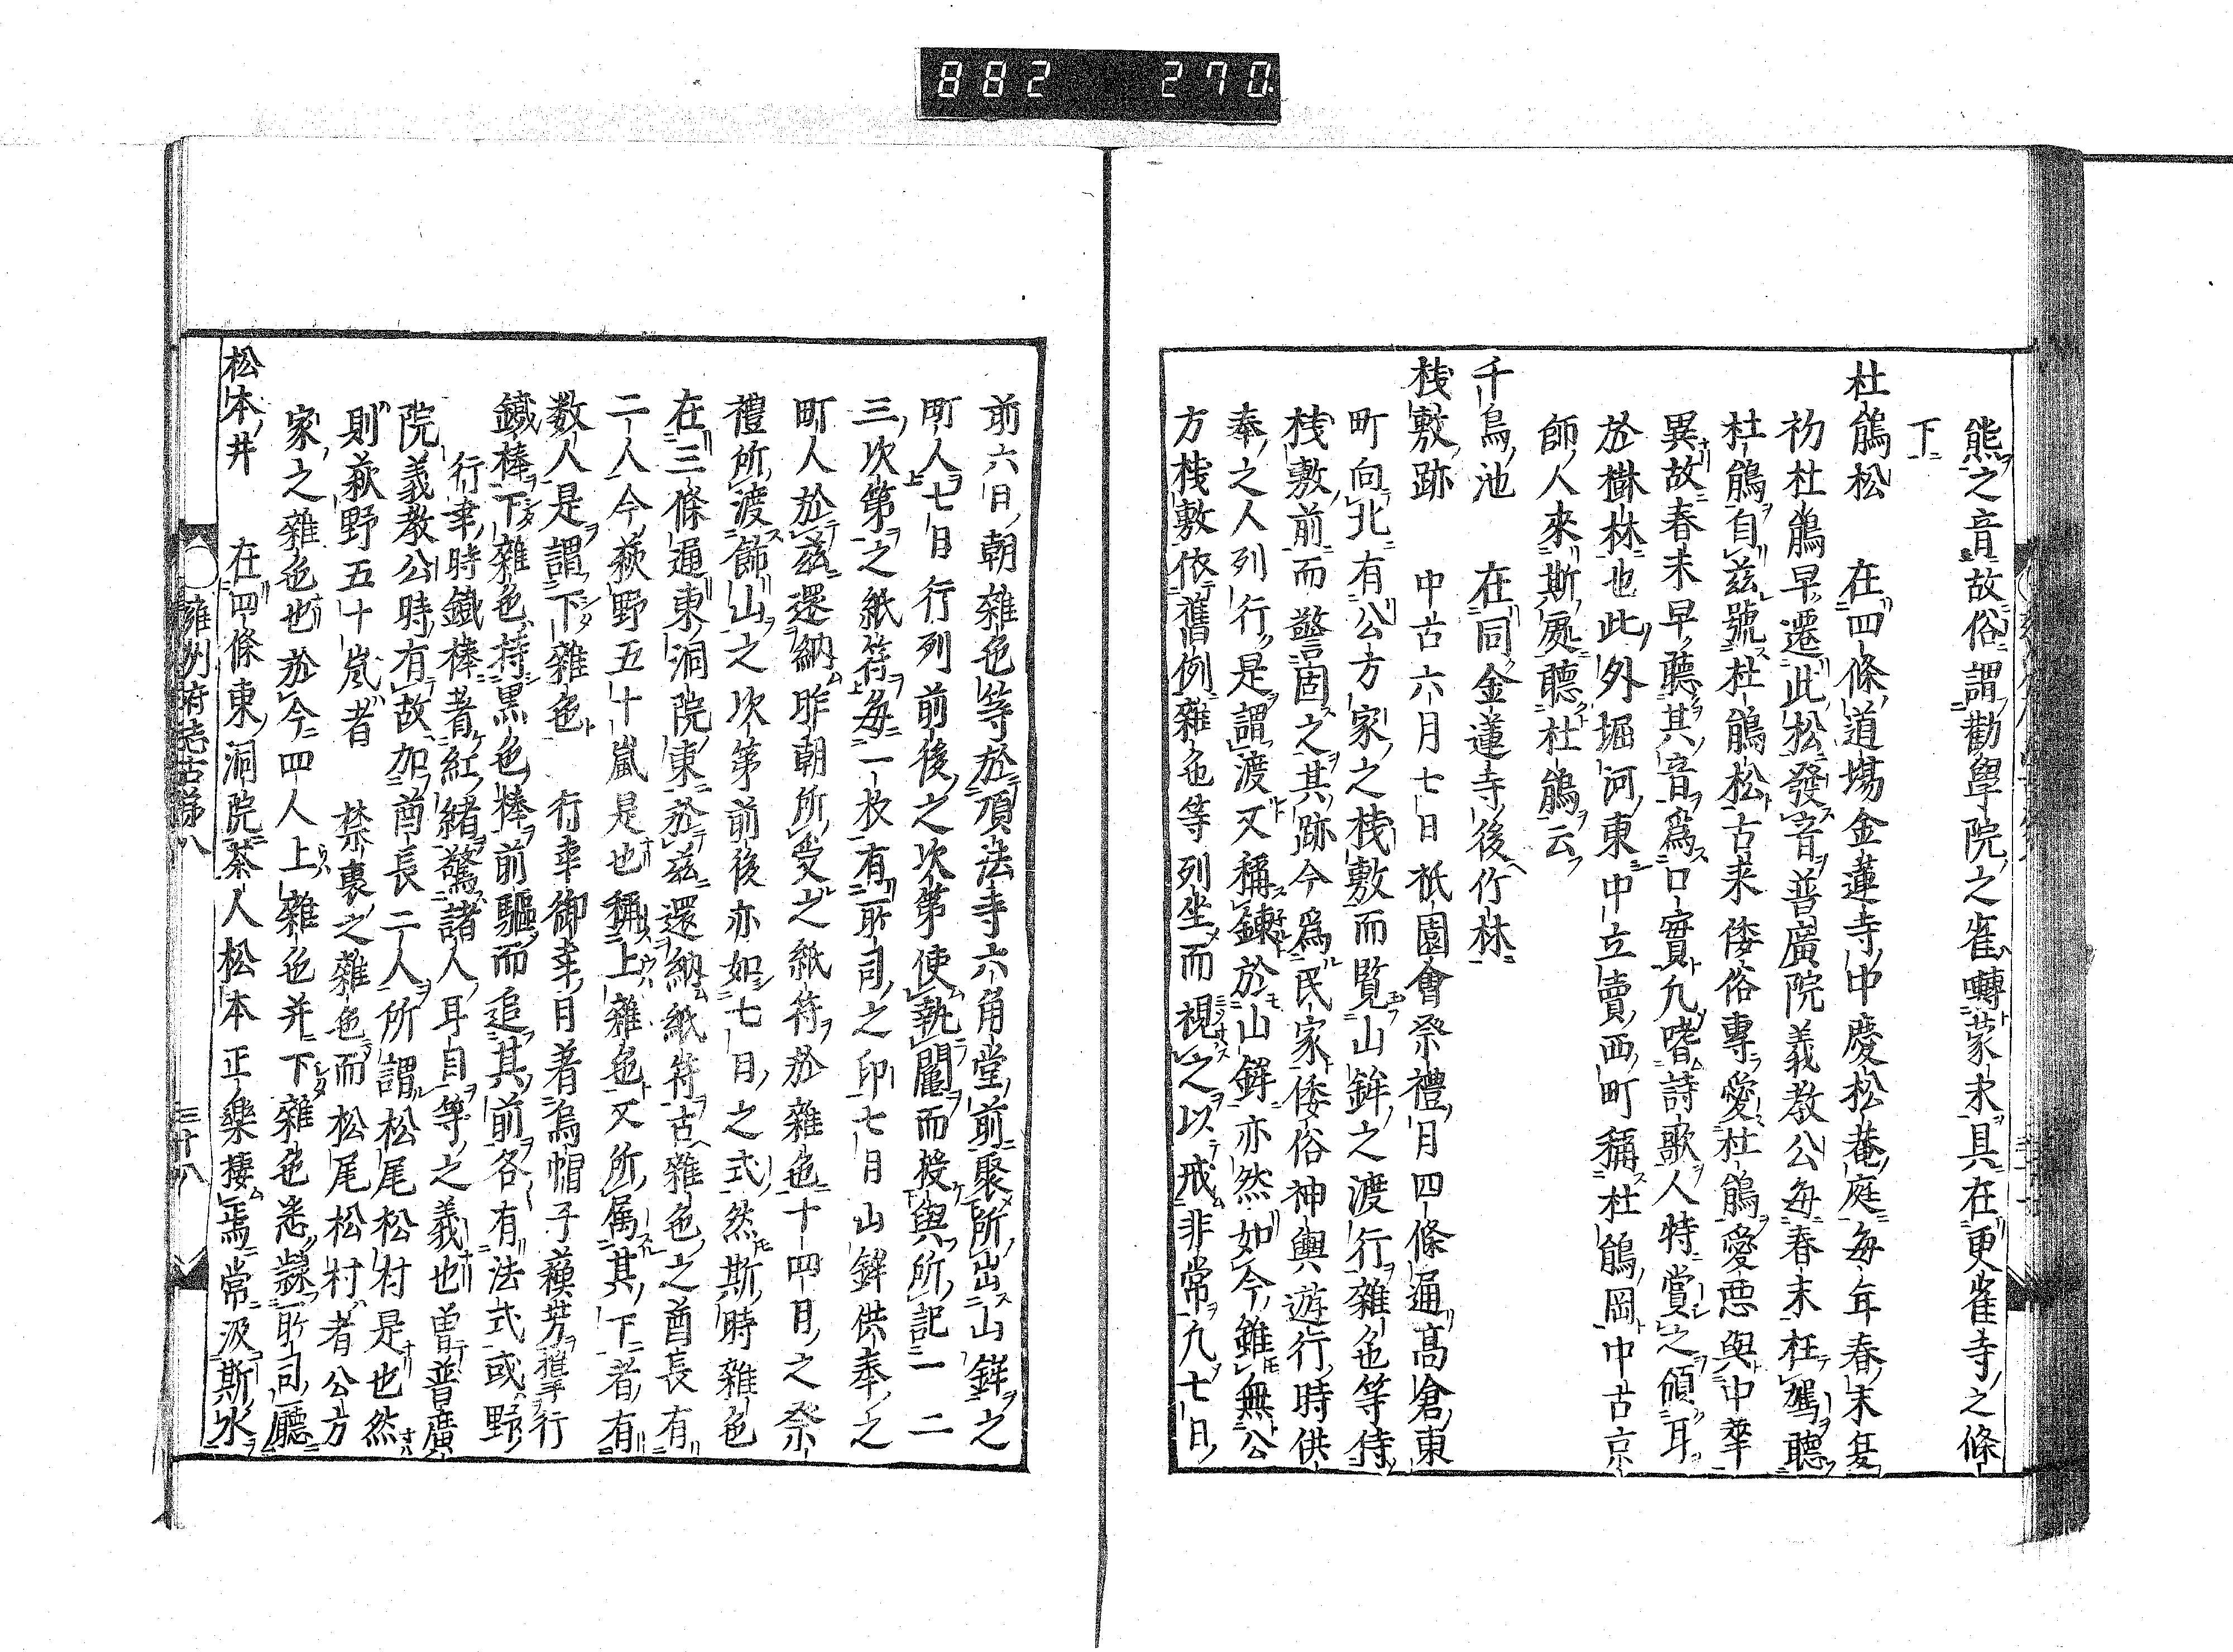 882 270
熊之音故俗謂勸學院之雀囀蒙求具在更雀寺之條
下
杜鵑松 在四條道場金蓮寺中慶松菴庭每年春末夏
初杜鵑早遷此松發音普廣院義教公每春末枉駕聽
杜鵑自玆號杜鵑松古來倭俗專愛杜鵑愛惡與中華
異故春末早聽其音爲口實凢嗜詩歌人特賞之傾耳
於樹林也此外堀河東中立賣西町稱杜鵑岡中古京
師人來斯處聽杜鵑云
千鳥池 在同金蓮寺後竹林
棧敷跡 中古六月七日祇園會祭禮日四條通髙倉東
町向北有公方家之棧敷而覧山鉾之渡行雜色等侍
棧敷前而警固之其跡今爲民家倭俗神輿遊行時供
奉之人列行是謂渡又稱鍊於山鉾亦然如今雖無公
方棧敷依舊例雜色等列坐而視之以戒非常凢七日
前六日朝雜色等於頂法寺六角堂前聚所出山鉾之
町人七日行列前後之次第使執鬮而授與所記一二
三次第之紙符每一枚有所司之印七日山鉾供奉之
町人於玆還納昨朝所受之紙符於雜色十四日之祭
禮所渡飾山之次第前後亦如七日之式然斯時雜色
在三條通東洞院東於玆還納紙符古雜色之酋長有
二人今荻野五十嵐是也稱上雜色又所属其下者有
数人是謂下雜色 行幸御幸日着烏帽子蘓芳攜行
鐵棒下雜色持黒色棒前驅而追其前各有法式或野
行事時鐵棒著紅緒驚諸人耳目等之義也曽普廣
院義教公時有故加酋長二人所謂松尾松村是也然
則荻野五十嵐者 禁裏之雜色而松尾松村者公方
家之雜色也於今四人上雜色并下雜色悉隷所司廳
松本井 在四條東洞院茶人松本正樂棲焉常汲斯水
雍州府志古蹟八 三十八